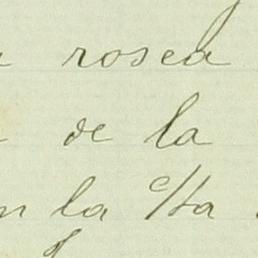 rosea
de la
la c/ta